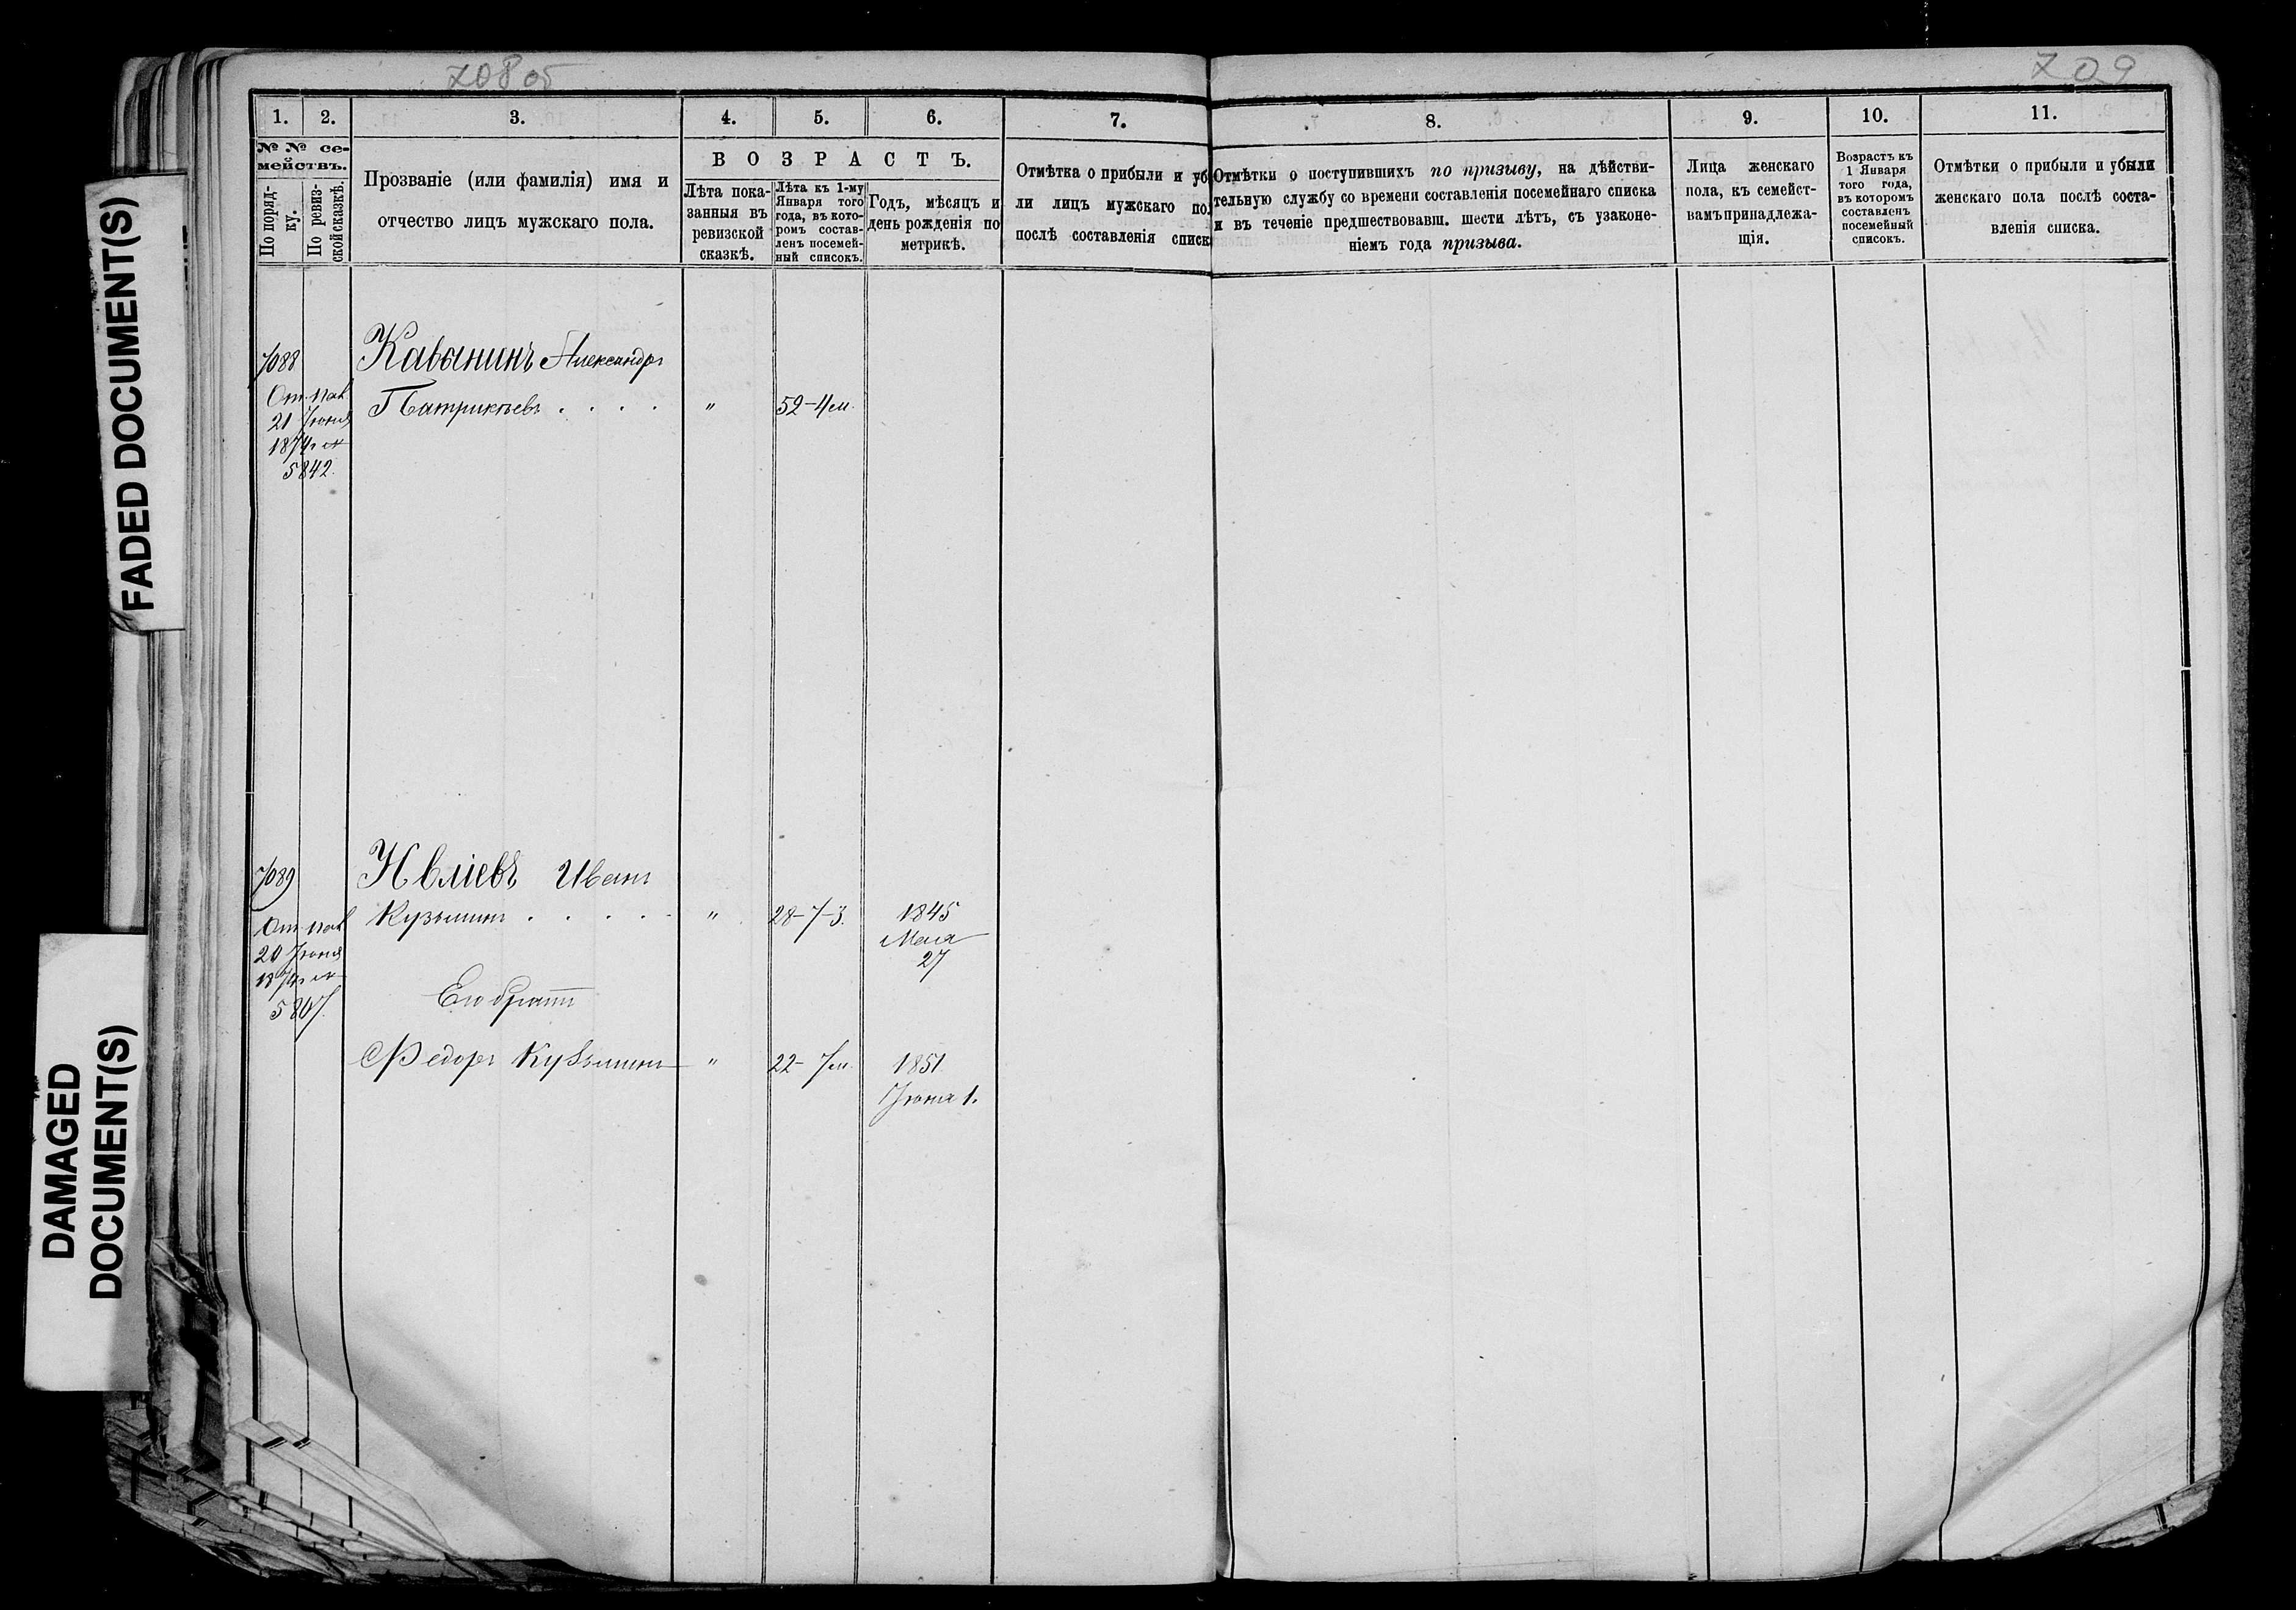 708 об
709
FADED DOCUMENT(S)
DAMAGED
DOCUMENT(S)
1.
2.
3.
4.
5.
6.
7.
8.
9.
10.
11.
№ № се-
мействъ.
По поряд-
ку.
По ревиз-
ской сказкѣ.
Прозваніе (или фамилія) имя и
отчество лицъ мужскаго пола.
ВОЗРАСТЪ.
Лѣта пока-
занныя въ
ревизской
сказкѣ.
Лѣта къ 1-му
Января того
года, въ кото-
ромъ состав-
ленъ посемей-
ный списокъ.
Годъ, мѣсяцъ и
день рожденія по
метрикѣ.
Отмѣтка о прибыли и уб
ли лицъ мужскаго пол
послѣ составленія списк
Отмѣтки о поступившихъ по призыву, на дѣйстви-
тельную службу со времени составленія посемейнаго списка
и въ теченіе предшествовавш. шести лѣтъ, съ узаконе-
ніемъ года призыва.
Лица женскаго
пола, къ семейст-
вамъ принадлежа-
щія.
Возрастъ къ
1 Января
того года,
въ которомъ
составленъ
посемейный
списокъ.
Отмѣтки о прибыли и убыли
женскаго пола послѣ соста-
вленія списка.
7088
Кавынинъ Александръ
Патрикѣевъ . . . . " 52-4м.
21 Іюня
1874г
5842.
7089
Ивліевъ Иванъ
Кузьминъ . . . . . " 28-7-3. 1845
Мая
27
20 Іюня
1874г
5807.
Его братъ
Федоръ Кузьминъ " 22-7м. 1851
Іюня 1.